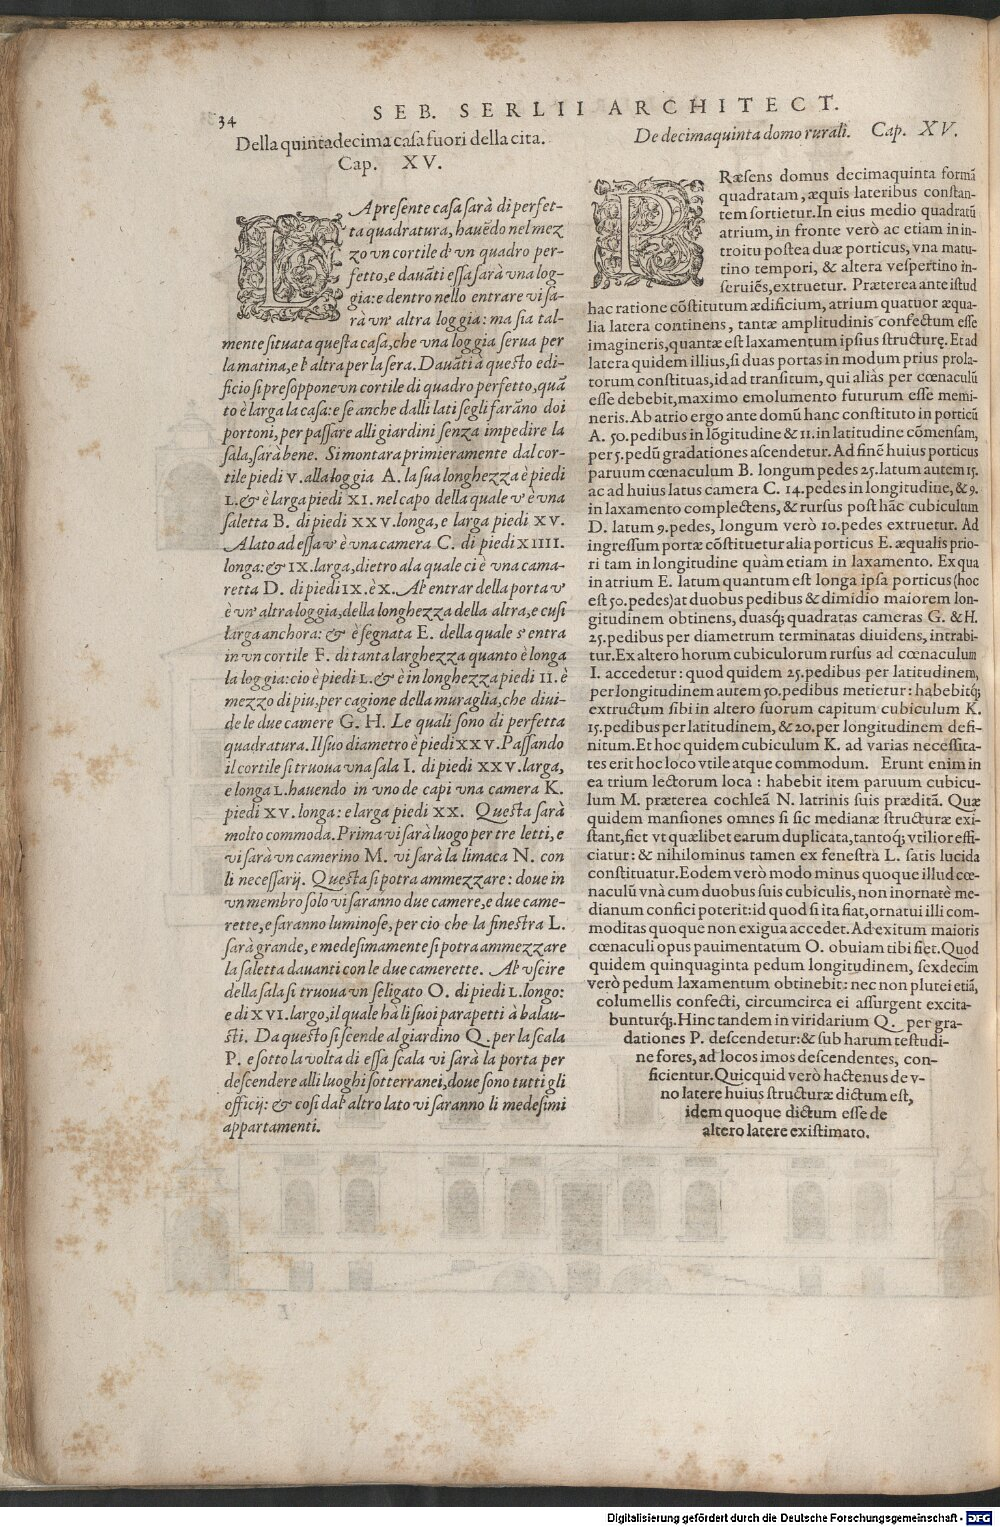 34
SEB. SERLII ARCHITECT.
Della quintadecima casa fuori della cita.
Cap. XV.
LA presente casa sarà di perfet-
ta quadratura, hauẽdo nel mez
zo vn cortile d' vn quadro per-
fetto, e dauãti essa sarà vna log-
gia: e dentro nello entrare vi sa-
rà vn' altra loggia: ma sia tal-
mente situata questa casa, che vna loggia serua per
la matina, e l' altra per la sera. Dauãti à questo edi-
ficio si presoppone vn cortile di quadro perfetto, quã
to è larga la casa: e se anche dalli lati segli farãno doi
portoni, per passare alli giardini senza impedire la
sala, sarà bene. Si montara primieramente dal cor-
tile piedi V. alla loggia A. la sua longhezza è piedi
L. & è larga piedi XI. nel capo della quale v' è vna
saletta B. di piedi XXV. longa, e larga piedi XV.
A lato ad essa v' è vna camera C. di piedi XIIII.
longa: & IX. larga, dietro a la quale ci è vna cama-
retta D. di piedi IX. è X. Al' entrar della porta v'
è vn' altra loggia, della longhezza della altra, e cusi
larga anchora: & è segnata E. della quale s' entra
in vn cortile F. di tanta larghezza quanto è longa
la loggia: cio è piedi L. & è in longhezza piedi II. è
mezzo di piu, per cagione della muraglia, che diui-
de le due camere G. H. Le quali sono di perfetta
quadratura. Il suo diametro è piedi XXV. Passando
il cortile si truoua vna sala I. di piedi XXV. larga,
e longa L. hauendo in vno de capi vna camera K.
piedi XV. longa: e larga piedi XX. Questa sarà
molto commoda. Prima vi sarà luogo per tre letti, e
vi sarà vn camerino M. vi sarà la limaca N. con
li necessarij. Questa si potra ammezzare: doue in
vn membro solo vi saranno due camere, e due came-
rette, e saranno luminose, per cio che la finestra L.
sarà grande, e medesimamente si potra ammezzare
la saletta dauanti con le due camerette. Al' vscire
della sala si truoua vn seligato O. di piedi L. longo:
e di XVI. largo, il quale hà li suoi parapetti à balau-
sti. Da questo si scende al giardino Q. per la scala
P. e sotto la volta di essa scala vi sarà la porta per
descendere alli luoghi sotterranei, doue sono tutti gli
officij: & cosi dal' altro lato vi saranno li medesimi
appartamenti.
De decimaquinta domo rurali. Cap. XV.
PRæsens domus decimaquinta formã
quadratam, æquis lateribus constan-
tem sortietur. In eius medio quadratũ
atrium, in fronte verò ac etiam in in-
troitu postea duæ porticus, vna matu-
tino tempori, & altera vespertino in-
seruiẽs, extruetur. Præterea ante istud
hac ratione cõstitutum ædificium, atrium quatuor æqua-
lia latera continens, tantæ amplitudinis confectum esse
imagineris, quantæ est laxamentum ipsius structurę. Et ad
latera quidem illius, si duas portas in modum prius prola-
torum constituas, id ad transitum, qui aliàs per cœnaculũ
esse debebit, maximo emolumento futurum esse memi-
neris. Ab atrio ergo ante domũ hanc constituto in porticũ
A. 50. pedibus in lõgitudine & 11. in latitudine cõmensam,
per 5. pedũ gradationes ascendetur. Ad finẽ huius porticus
paruum cœnaculum B. longum pedes 25. latum autem 15.
ac ad huius latus camera C. 14. pedes in longitudine, & 9.
in laxamento complectens, & rursus post hãc cubiculum
D. latum 9. pedes, longum verò 10. pedes extruetur. Ad
ingressum portæ cõstituetur alia porticus E. æqualis prio-
ri tam in longitudine quàm etiam in laxamento. Ex qua
in atrium E. latum quantum est longa ipsa porticus (hoc
est 50. pedes) at duobus pedibus & dimidio maiorem lon-
gitudinem obtinens, duasq́; quadratas cameras G. & H.
25. pedibus per diametrum terminatas diuidens, intrabi-
tur. Ex altero horum cubiculorum rursus ad cœnaculum
I. accedetur: quod quidem 25. pedibus per latitudinem,
per longitudinem autem 50. pedibus metietur: habebitq́;
extructum sibi in altero suorum capitum cubiculum K.
15. pedibus per latitudinem, & 20. per longitudinem defi-
nitum. Et hoc quidem cubiculum K. ad varias necessita-
tes erit hoc loco vtile atque commodum. Erunt enim in
ea trium lectorum loca: habebit item paruum cubicu-
lum M. præterea cochleã N. latrinis suis præditã. Quæ
quidem mansiones omnes si sic medianæ structuræ exi-
stant, fiet vt quælibet earum duplicata, tantoq́; vtilior effi-
ciatur: & nihilominus tamen ex fenestra L. satis lucida
constituatur. Eodem verò modo minus quoque illud cœ-
naculũ vnà cum duobus suis cubiculis, non inornatè me-
dianum confici poterit: id quod si ita fiat, ornatui illi com-
moditas quoque non exigua accedet. Ad exitum maioris
cœnaculi opus pauimentatum O. obuiam tibi fiet. Quod
quidem quinquaginta pedum longitudinem, sexdecim
verò pedum laxamentum obtinebit: nec non plutei etiã,
columellis confecti, circumcirca ei assurgent excita-
bunturq́;. Hinc tandem in viridarium Q. per gra-
dationes P. descendetur: & sub harum testudi-
ne fores, ad locos imos descendentes, con-
ficientur. Quicquid verò hactenus de v-
no latere huius structuræ dictum est,
idem quoque dictum esse de
altero latere existimato.
Digitalisierung gefördert durch die Deutsche Forschungsgemeinschaft - DFG